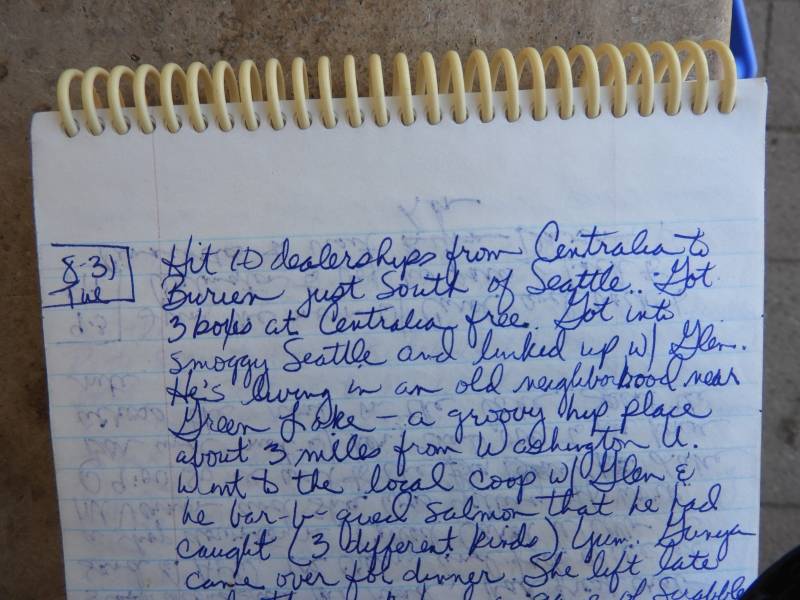 8-31
Tue
Hit 10 dealerships from Centralia to
Burien just South of Seattle.. Got
3 boxes at Centralia free. Got into
smoggy Seattle and linked up w/ Glen.
He's living in an old neighborhood near
Green Lake - a groovy hip place
about 3 miles from Washington U.
Went to the local coop w/ Glen &
he bar-b-qued salmon that he had
caught (3 different kinds) Yum. Gunya
came over for dinner. She left late
game of Scrabble